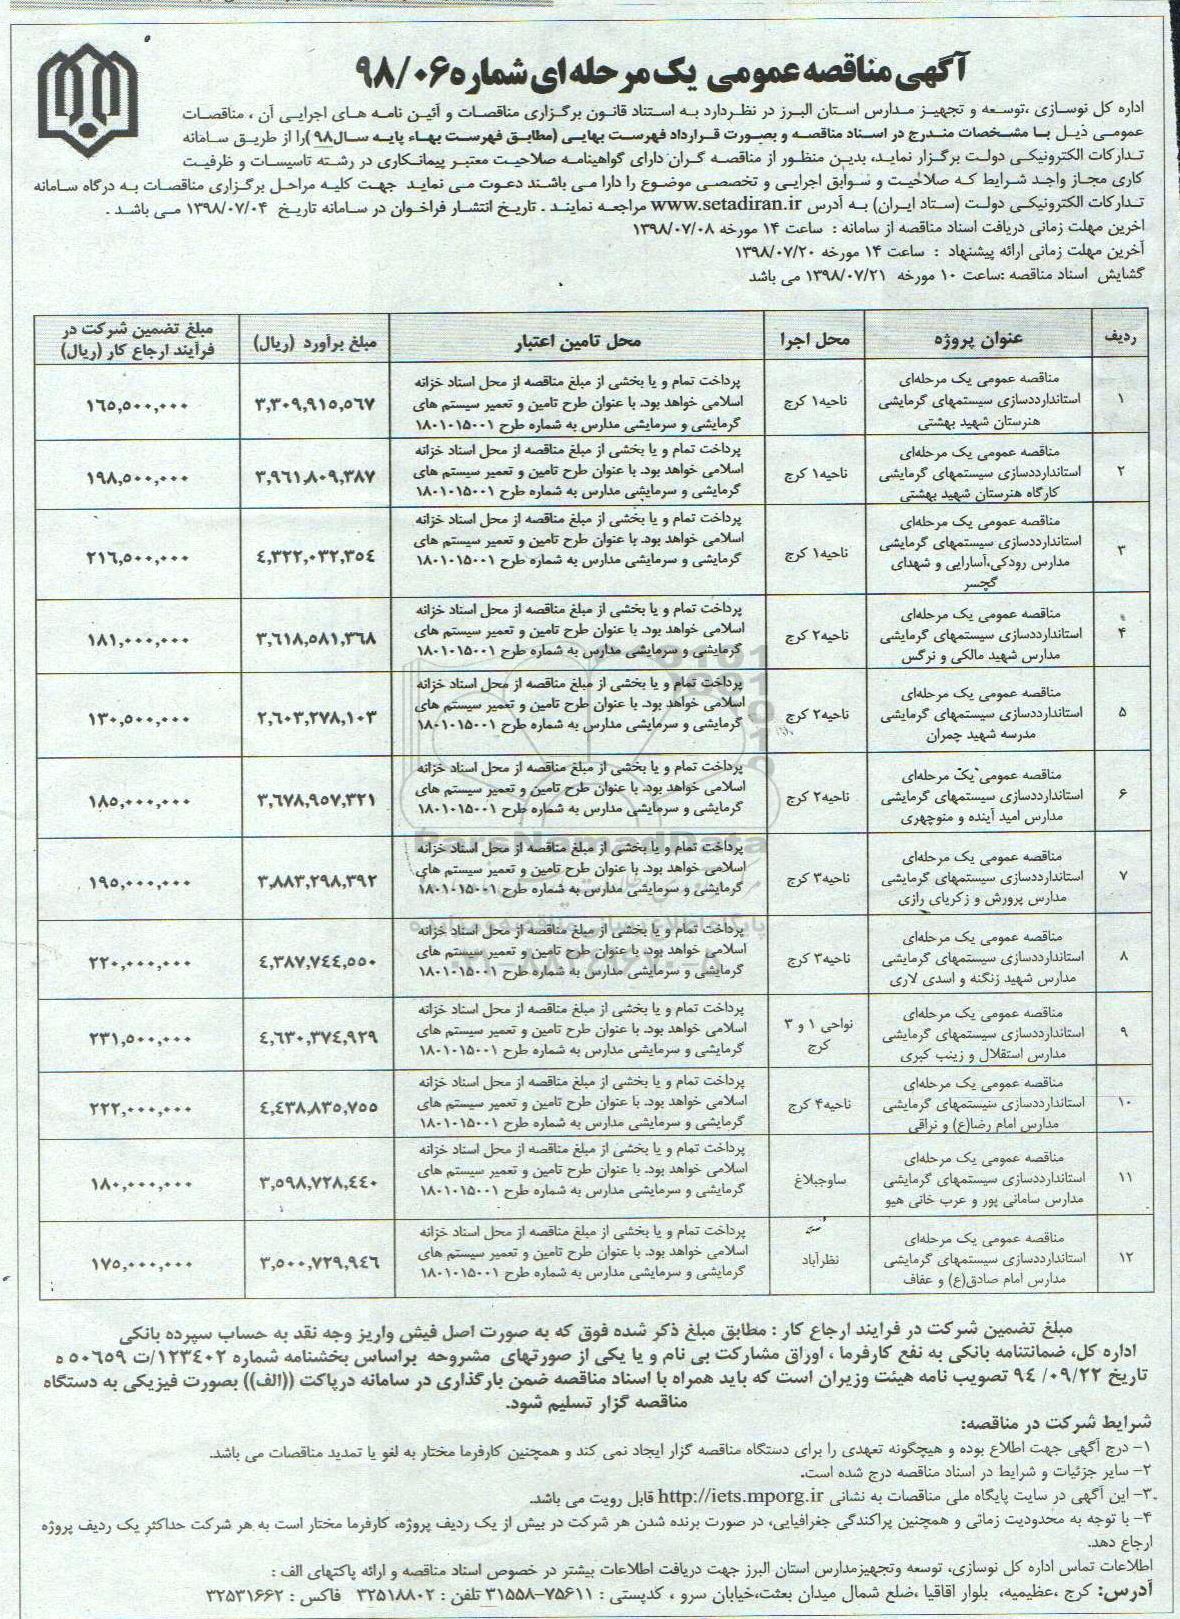 آگهی مناقصه عمومی یک مرحله ای شماره ۹۸/۰۶
اداره کل نوسازی ،توسعه و تجهیز مدارس استان البرز در نظردارد به استناد قانون برگزاری مناقصات و آئین نامه های اجرایی آن ، مناقصات
عمومی ذیل با مشخصات مندرج در اسناد مناقصه و بصورت قرارداد فهرست بهایی (مطابق فهرست بهاء پایه سال۹۸ )را از طریق سامانه
تدارکات الکترونیکی دولت برگزار نماید، بدین منظور از مناقصه گران دارای گواهینامه صلاحیت معتبر پیمانکاری در رشته تاسیسات و ظرفیت
کاری مجاز واجد شرایط که صلاحیت و سوابق اجرایی و تخصصی موضوع را دارا می باشند دعوت می نماید جهت کلیه مراحل برگزاری مناقصات به درگاه سامانه
تدارکات الکترونیکی دولت (ستاد ایران) به آدرس www.setadiran.ir مراجعه نمایند . تاریخ انتشار فراخوان در سامانه تاریخ ۱۳۹۸/۰۷/۰۴ می باشد .
اخرین مهلت زمانی دریافت اسناد مناقصه از سامانه : ساعت ۱۴ مورخه ۱۳۹۸/۰۷/۰۸
آخرین مهلت زمانی ارائه پیشنهاد : ساعت ۱۴ مورخه ۱۳۹۸/۰۷/۲۰
گشایش اسناد مناقصه :ساعت ۱۰ مورخه ۱۳۹۸/۰۷/۲۱ می باشد
ردیف عنوان پروژه محل اجرا محل تامین اعتبار مبلغ برآورد (ریال) مبلغ تضمین شرکت در
فرآیند ارجاع کار (ریال)
مناقصه عمومی یک مرحله‌ای پرداخت تمام و یا بخشی از مبلغ مناقصه از محل اسناد خزانه
۱ استانداردسازی سیستمهای گرمایشی ناحیه۱ کرج اسلامی خواهد بود. با عنوان طرح تامین و تعمیر سیستم های ۳,۳۰۹,۹۱۵,۵۶۷ ۱۶۵,۵۰۰,۰۰۰
هنرستان شهید بهشتی گرمایشی و سرمایشی مدارس به شماره طرح ۱۸۰۱۰۱۵۰۰۱
مناقصه عمومی یک مرحله‌ای پرداخت تمام و یا بخشی از مبلغ مناقصه از محل اسناد خزانه
۲ استانداردسازی سیستمهای گرمایشی ناحیه۱ کرج اسلامی خواهد بود. با عنوان طرح تامین و تعمیر سیستم های ۳,۹۶۱,۸۰۹,۳۸۷ ۱۹۸,۵۰۰,۰۰۰
کارگاه هنرستان شهید بهشتی گرمایشی و سرمایشی مدارس به شماره طرح ۱۸۰۱۰۱۵۰۰۱
مناقصه عمومی یک مرحله‌ای پرداخت تمام و یا بخشی از مبلغ مناقصه از محل اسناد خزانه
۳ استانداردسازی سیستمهای گرمایشی ناحیه۱ کرج اسلامی خواهد بود. با عنوان طرح تامین و تعمیر سیستم های ۴,۳۲۲,۰۳۲,۳۵۴ ۲۱۶,۵۰۰,۰۰۰
مدارس رودکی،آسارایی و شهدای گرمایشی و سرمایشی مدارس به شماره طرح ۱۸۰۱۰۱۵۰۰۱
گچسر
مناقصه عمومی یک مرحله‌ای پرداخت تمام و یا بخشی از مبلغ مناقصه از محل اسناد خزانه
۴ استانداردسازی سیستمهای گرمایشی ناحیه۲ کرج اسلامی خواهد بود. با عنوان طرح تامین و تعمیر سیستم های ۳,۶۱۸,۵۸۱,۳۶۸ ۱۸۱,۰۰۰,۰۰۰
مدارس شهید مالکی و نرگس گرمایشی و سرمایشی مدارس به شماره طرح ۱۸۰۱۰۱۵۰۰۱
مناقصه عمومی یک مرحله‌ای پرداخت تمام و یا بخشی از مبلغ مناقصه از محل اسناد خزانه
۵ استانداردسازی سیستمهای گرمایشی ناحیه۲ کرج اسلامی خواهد بود. با عنوان طرح تامین و تعمیر سیستم های ۲,۶۰۳,۲۷۸,۱۰۳ ۱۳۰,۵۰۰,۰۰۰
مدرسه شهید چمران گرمایشی و سرمایشی مدارس به شماره طرح ۱۸۰۱۰۱۵۰۰۱
مناقصه عمومی یک مرحله‌ای پرداخت تمام و یا بخشی از مبلغ مناقصه از محل اسناد خزانه
۶ استانداردسازی سیستمهای گرمایشی ناحیه۲ کرج اسلامی خواهد بود. با عنوان طرح تامین و تعمیر سیستم های ۳,۶۷۸,۹۵۷,۳۲۱ ۱۸۵,۰۰۰,۰۰۰
مدارس امید آینده و منوچهری گرمایشی و سرمایشی مدارس به شماره طرح ۱۸۰۱۰۱۵۰۰۱
ParsNamadData
مناقصه عمومی یک مرحله‌ای پرداخت تمام و یا بخشی از مبلغ مناقصه از محل اسناد خزانه
۷ استانداردسازی سیستمهای گرمایشی ناحیه۳ کرج اسلامی خواهد بود. با عنوان طرح تامین و تعمیر سیستم های ۳,۸۸۳,۲۹۸,۳۹۲ ۱۹۵,۰۰۰,۰۰۰
مدارس پرورش و زکریای رازی گرمایشی و سرمایشی مدارس به شماره طرح ۱۸۰۱۰۱۵۰۰۱
مناقصه عمومی یک مرحله‌ای پرداخت تمام و یا بخشی از مبلغ مناقصه از محل اسناد خزانه
۸ استانداردسازی سیستمهای گرمایشی ناحیه۳ کرج اسلامی خواهد بود. با عنوان طرح تامین و تعمیر سیستم های ۴,۳۸۷,۷۴۴,۵۵۰ ۲۲۰,۰۰۰,۰۰۰
مدارس شهید زنگنه و اسدی لاری گرمایشی و سرمایشی مدارس به شماره طرح ۱۸۰۱۰۱۵۰۰۱
مناقصه عمومی یک مرحله‌ای نواحی ۱ و ۳ پرداخت تمام و یا بخشی از مبلغ مناقصه از محل اسناد خزانه
۹ استانداردسازی سیستمهای گرمایشی کرج اسلامی خواهد بود. با عنوان طرح تامین و تعمیر سیستم های ۴,۶۳۰,۳۷۴,۹۲۹ ۲۳۱,۵۰۰,۰۰۰
مدارس استقلال و زینب کبری گرمایشی و سرمایشی مدارس به شماره طرح ۱۸۰۱۰۱۵۰۰۱
مناقصه عمومی یک مرحله‌ای پرداخت تمام و یا بخشی از مبلغ مناقصه از محل اسناد خزانه
۱۰ استانداردسازی سیستمهای گرمایشی ناحیه۴ کرج اسلامی خواهد بود. با عنوان طرح تامین و تعمیر سیستم های ۴,۴۳۸,۸۳۵,۷۵۵ ۲۲۲,۰۰۰,۰۰۰
مدارس امام رضا(ع) و نراقی گرمایشی و سرمایشی مدارس به شماره طرح ۱۸۰۱۰۱۵۰۰۱
مناقصه عمومی یک مرحله‌ای پرداخت تمام و یا بخشی از مبلغ مناقصه از محل اسناد خزانه
۱۱ استانداردسازی سیستمهای گرمایشی ساوجبلاغ اسلامی خواهد بود. با عنوان طرح تامین و تعمیر سیستم های ۳,۵۹۸,۷۲۸,۴۴۰ ۱۸۰,۰۰۰,۰۰۰
مدارس سامانی پور و عرب خانی هیو گرمایشی و سرمایشی مدارس به شماره طرح ۱۸۰۱۰۱۵۰۰۱
مناقصه عمومی یک مرحله‌ای پرداخت تمام و یا بخشی از مبلغ مناقصه از محل اسناد خزانه
۱۲ استانداردسازی سیستمهای گرمایشی نظرآباد اسلامی خواهد بود. با عنوان طرح تامین و تعمیر سیستم های ۳,۵۰۰,۷۲۹,۹۴۶ ۱۷۵,۰۰۰,۰۰۰
مدارس امام صادق(ع) و عفاف گرمایشی و سرمایشی مدارس به شماره طرح ۱۸۰۱۰۱۵۰۰۱
مبلغ تضمین شرکت در فرایند ارجاع کار : مطابق مبلغ ذکر شده فوق که به صورت اصل فیش واریز وجه نقد به حساب سپرده بانکی
اداره کل، ضمانتنامه بانکی به نفع کارفرما ، اوراق مشارکت بی نام و یا یکی از صورتهای مشروحه براساس بخشنامه شماره ۱۲۳۴۰۲/ت ۵۰۶۵۹ ه
تاریخ ۹۴ /۰۹/۲۲ تصویب نامه هیئت وزیران است که باید همراه با اسناد مناقصه ضمن بارگذاری در سامانه درپاکت ((الف)) بصورت فیزیکی به دستگاه
مناقصه گزار تسلیم شود.
شرایط شرکت در مناقصه:
۱- درج آگهی جهت اطلاع بوده و هیچگونه تعهدی را برای دستگاه مناقصه گزار ایجاد نمی کند و همچنین کارفرما مختار به لغو یا تمدید مناقصات می باشد.
۲- سایر جزئیات و شرایط در اسناد مناقصه درج شده است.
۳- این آگهی در سایت پایگاه ملی مناقصات به نشانی http://iets.mporg.ir قابل رویت می باشد.
۴- با توجه به محدودیت زمانی و همچنین پراکندگی جغرافیایی، در صورت برنده شدن هر شرکت در بیش از یک ردیف پروژه، کارفرما مختار است به هر شرکت حداکثر یک ردیف پروژه
ارجاع دهد.
اطلاعات تماس اداره کل نوسازی، توسعه وتجهیزمدارس استان البرز جهت دریافت اطلاعات بیشتر در خصوص اسناد مناقصه و ارائه پاکتهای الف :
آدرس: کرج ،عظیمیه، بلوار اقاقیا ،ضلع شمال میدان بعثت،خیابان سرو ، کدپستی : ۷۵۶۱۱-۳۱۵۵۸ تلفن : ۳۲۵۱۸۸۰۲ فاکس : ۳۲۵۳۱۶۶۲